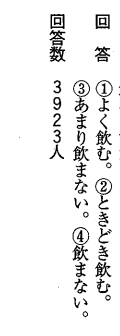 回　答　①よく飲む。②ときどき飲む。
③あまり飲まない。④飲まない。
回答数　3923人